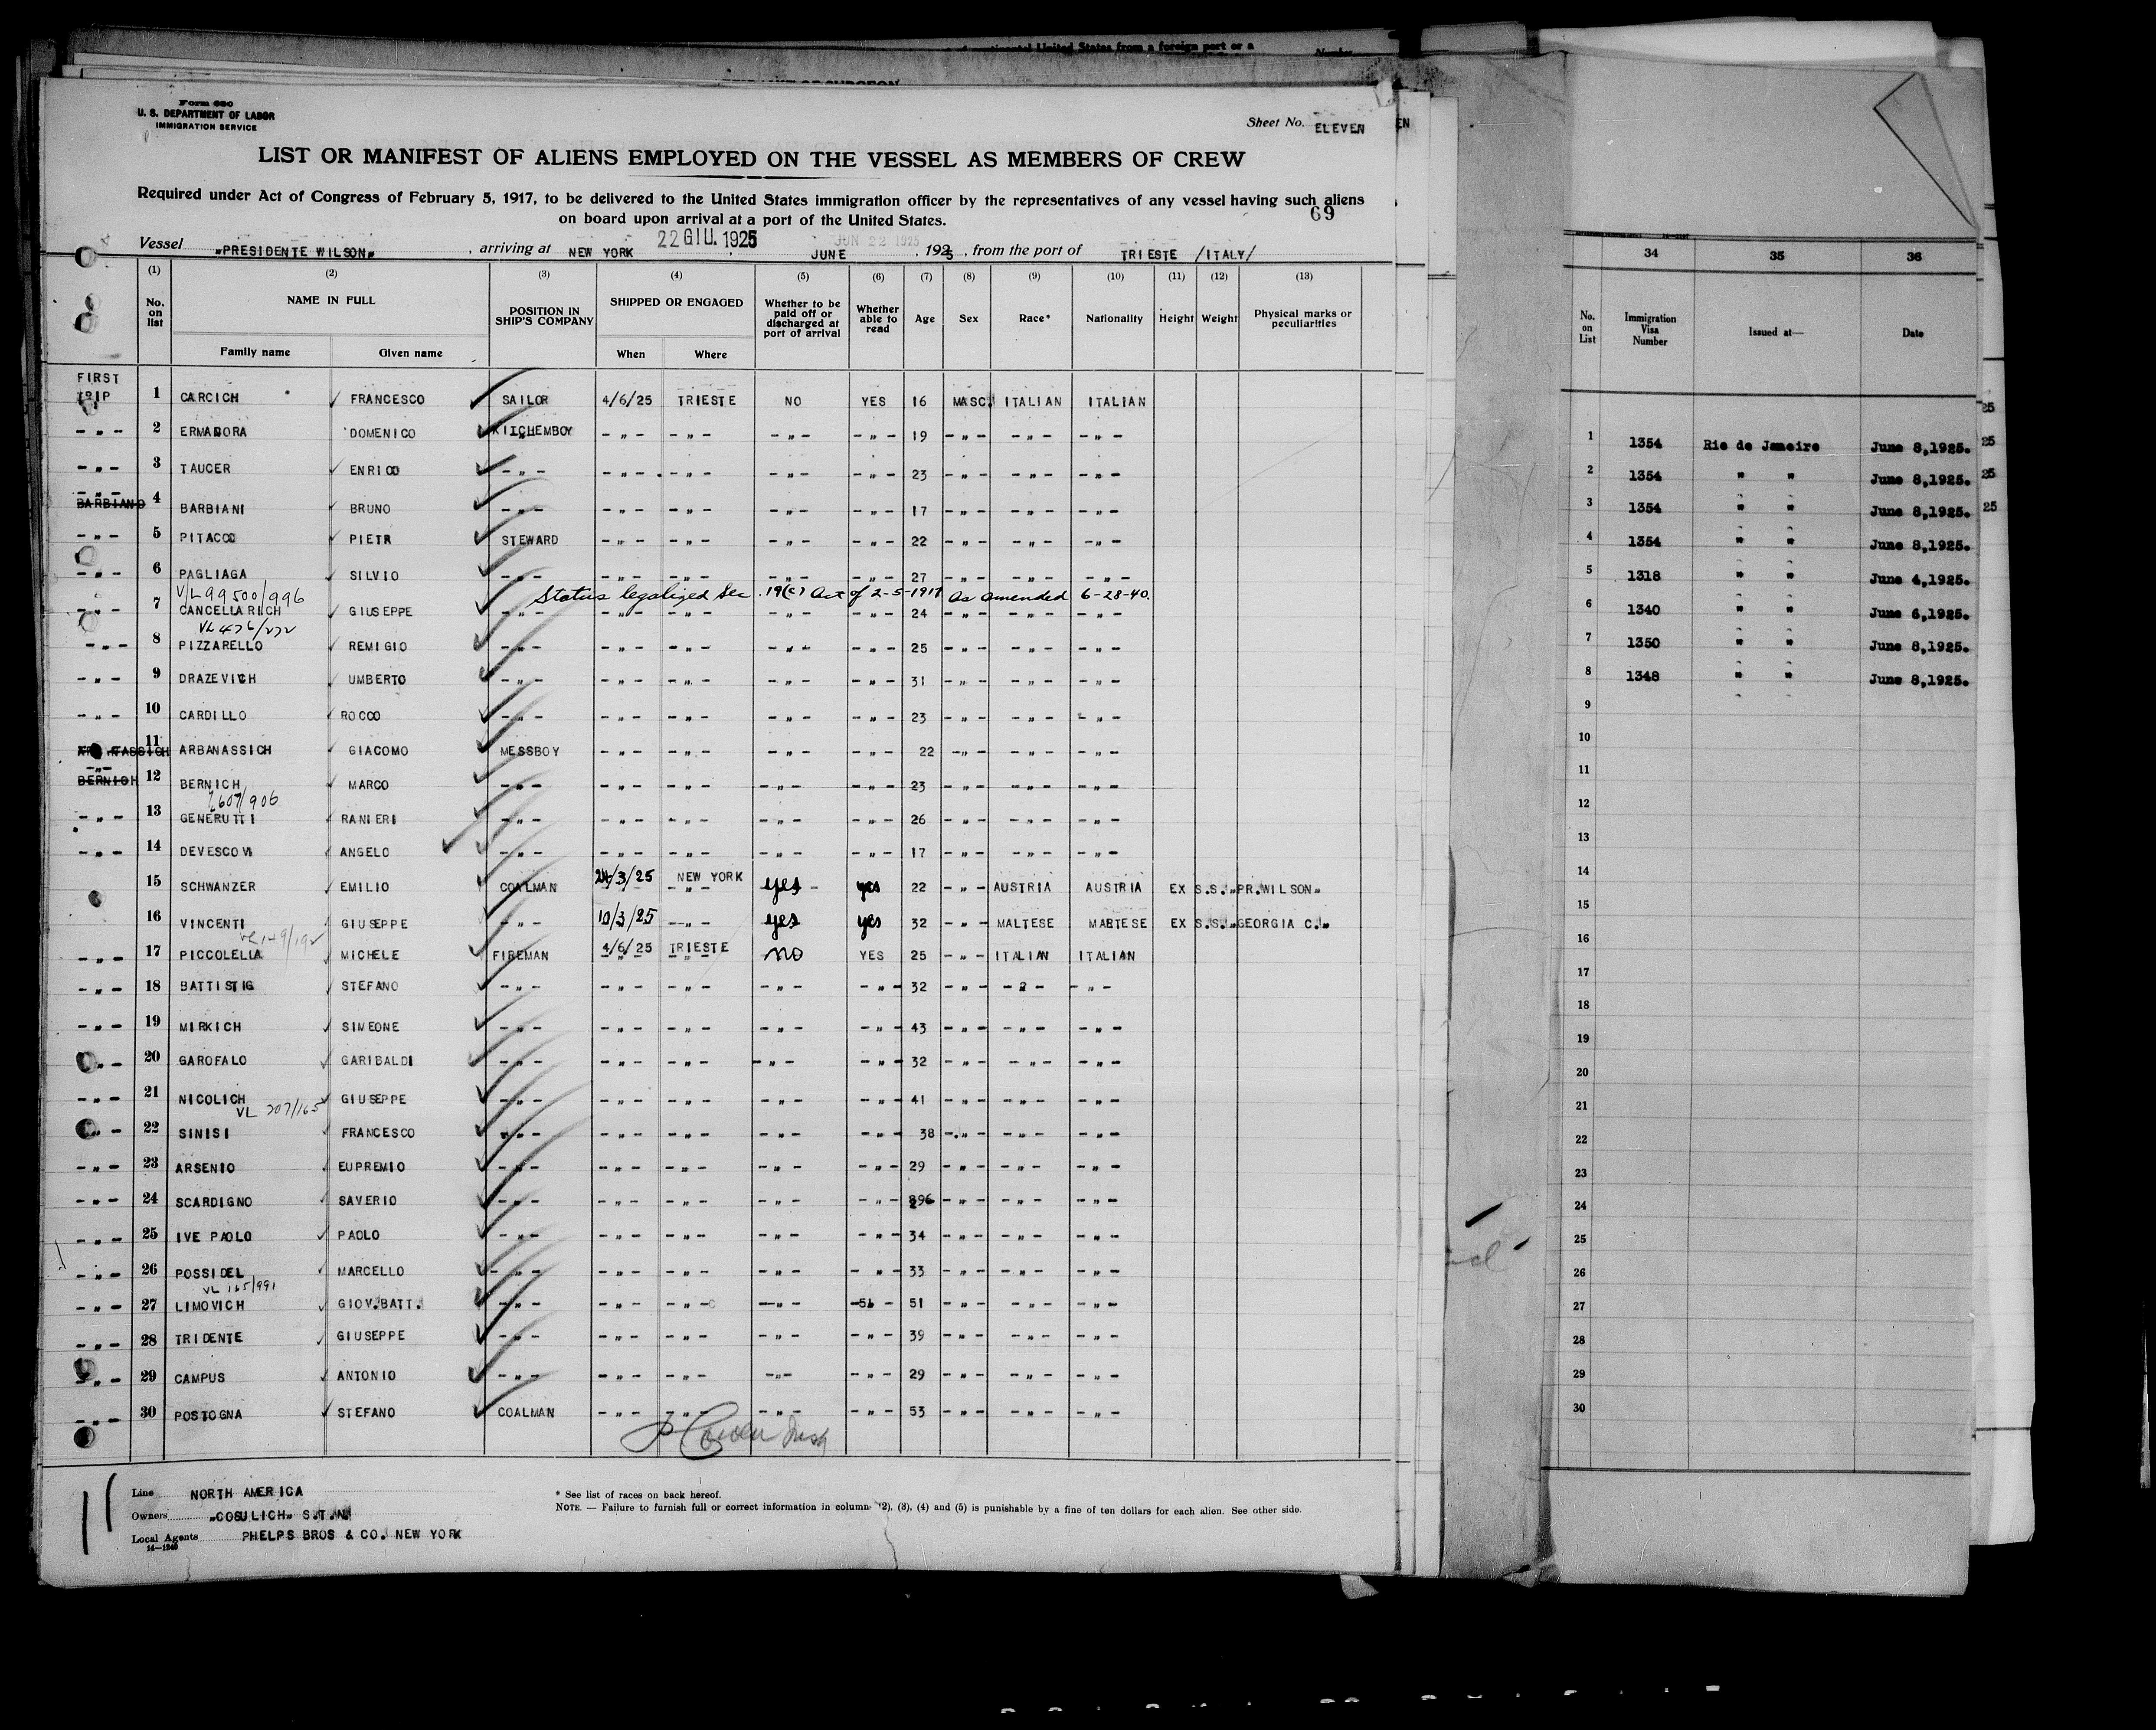 continental United States from a foreign port or a
Form 680
U. S. DEPARTMENT OF LABOR
IMMIGRATION SERVICE
Sheet No. ELEVEN
LIST OR MANIFEST OF ALIENS EMPLOYED ON THE VESSEL AS MEMBERS OF CREW
Required under Act of Congress of February 5, 1917, to be delivered to the United States immigration officer by the representatives of any vessel having such aliens
on board upon arrival at a port of the United States.
69
22 GIU. 1925 JUN 22 1925
Vessel „PRESIDENTE WILSON„ , arriving at NEW YORK , JUNE , 1925 , from the port of TRIESTE /ITALY/
(1) (2) (3) (4) (5) (6) (7) (8) (9) (10) (11) (12) (13)
No. on list NAME IN FULL Family name Given name POSITION IN SHIP'S COMPANY SHIPPED OR ENGAGED When Where Whether to be paid off or discharged at port of arrival Whether able to read Age Sex Race* Nationality Height Weight Physical marks or peculiarities
FIRST
TRIP 1 CARCICH FRANCESCO SAILOR 4/6/25 TRIESTE NO YES 16 MASC. ITALIAN ITALIAN
-„- 2 ERMABORA DOMENICO KITCHEMBOY -„- -„- -„- -„- 19 -„- -„- -„-
-„- 3 TAUCER ENRICO -„- -„- -„- -„- -„- 23 -„- -„- -„-
-„-
BARBIANO 4 BARBIANI BRUNO -„- -„- -„- -„- -„- 17 -„- -„- -„-
-„- 5 PITACCO PIETR STEWARD -„- -„- -„- -„- 22 -„- -„- -„-
-„- 6 PAGLIAGA SILVIO -„- -„- -„- -„- -„- 27 -„- -„- -„-
V/L 99500/996 Status legalized Sec. 19(c) Act of 2-5-1917 as amended 6-28-40.
-„- 7 CANCELLARICH GIUSEPPE -„- -„- -„- -„- -„- 24 -„- -„- -„-
-„- 8 PIZZARELLO REMIGIO -„- -„- -„- -„- -„- 25 -„- -„- -„-
-„- 9 DRAZEVICH UMBERTO -„- -„- -„- -„- -„- 31 -„- -„- -„-
-„- 10 CARDILLO ROCCO -„- -„- -„- -„- -„- 23 -„- -„- -„-
11 ARBANASSICH GIACOMO MESSBOY -„- -„- -„- -„- 22 -„- -„- -„-
-„-
BERNICH 12 BERNICH MARCO -„- -„- -„- -„- -„- 23 -„- -„- -„-
-„- 13 GENERUTTI RANIERI -„- -„- -„- -„- -„- 26 -„- -„- -„-
-„- 14 DEVESCOVI ANGELO -„- -„- -„- -„- -„- 17 -„- -„- -„-
15 SCHWANZER EMILIO COALMAN 24/3/25 NEW YORK yes yes 22 -„- AUSTRIA AUSTRIA EX S.S.„PR.WILSON„
16 VINCENTI GIUSEPPE -„- 10/3/25 -„- yes yes 32 -„- MALTESE MALTESE EX S.S.„GEORGIA C.„
-„- 17 PICCOLELLA MICHELE FIREMAN 4/6/25 TRIESTE no YES 25 -„- ITALIAN ITALIAN
-„- 18 BATTISTIG STEFANO -„- -„- -„- -„- -„- 32 -„- -„- -„-
-„- 19 MIRKICH SIMEONE -„- -„- -„- -„- -„- 43 -„- -„- -„-
-„- 20 GAROFALO GARIBALDI -„- -„- -„- -„- -„- 32 -„- -„- -„-
-„- 21 NICOLICH GIUSEPPE -„- -„- -„- -„- -„- 41 -„- -„- -„-
VL 207/165
-„- 22 SINISI FRANCESCO -„- -„- -„- -„- -„- 38 -„- -„- -„-
-„- 23 ARSENIO EUPREMIO -„- -„- -„- -„- -„- 29 -„- -„- -„-
-„- 24 SCARDIGNO SAVERIO -„- -„- -„- -„- -„- -„- -„- -„-
-„- 25 IVE PAOLO PAOLO -„- -„- -„- -„- -„- 34 -„- -„- -„-
-„- 26 POSSIDEL MARCELLO -„- -„- -„- -„- -„- 33 -„- -„- -„-
VL 165/991
-„- 27 LIMOVICH GIOV.BATT. -„- -„- -„- -„- -51- 51 -„- -„- -„-
-„- 28 TRIDENTE GIUSEPPE -„- -„- -„- -„- -„- 39 -„- -„- -„-
-„- 29 CAMPUS ANTONIO -„- -„- -„- -„- -„- 29 -„- -„- -„-
-„- 30 POSTOGNA STEFANO COALMAN -„- -„- -„- -„- 53 -„- -„- -„-
Line NORTH AMERICA
Owners „COSULICH„ S.T.N.
Local Agents PHELPS BROS & CO. NEW YORK
14—1240
* See list of races on back hereof.
NOTE. — Failure to furnish full or correct information in columns (2), (3), (4) and (5) is punishable by a fine of ten dollars for each alien. See other side.
11
34 35 36
No. on List Immigration Visa Number Issued at— Date
1 1354 Rio de Janeiro June 8,1925.
2 1354 " " June 8,1925.
3 1354 " " June 8,1925.
4 1354 " " June 8,1925.
5 1318 " " June 4,1925.
6 1340 " " June 6,1925.
7 1350 " " June 8,1925.
8 1348 " " June 8,1925.
9
10
11
12
13
14
15
16
17
18
19
20
21
22
23
24
25
26
27
28
29
30
25
25
25
25